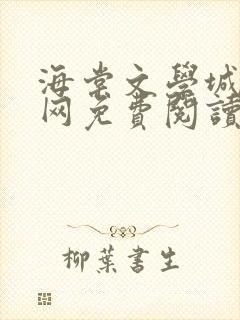 海棠文學城
网免費閱讀
柳葉書生